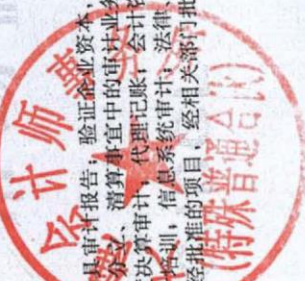 具审计报告，验证企业资本，
分立、清算事宜中的审计业务
决算审计，代理记账；会计
培训，信息系统审计，法律
经批准的项目，经相关部门批
会计师事务所
(特殊普通合伙)